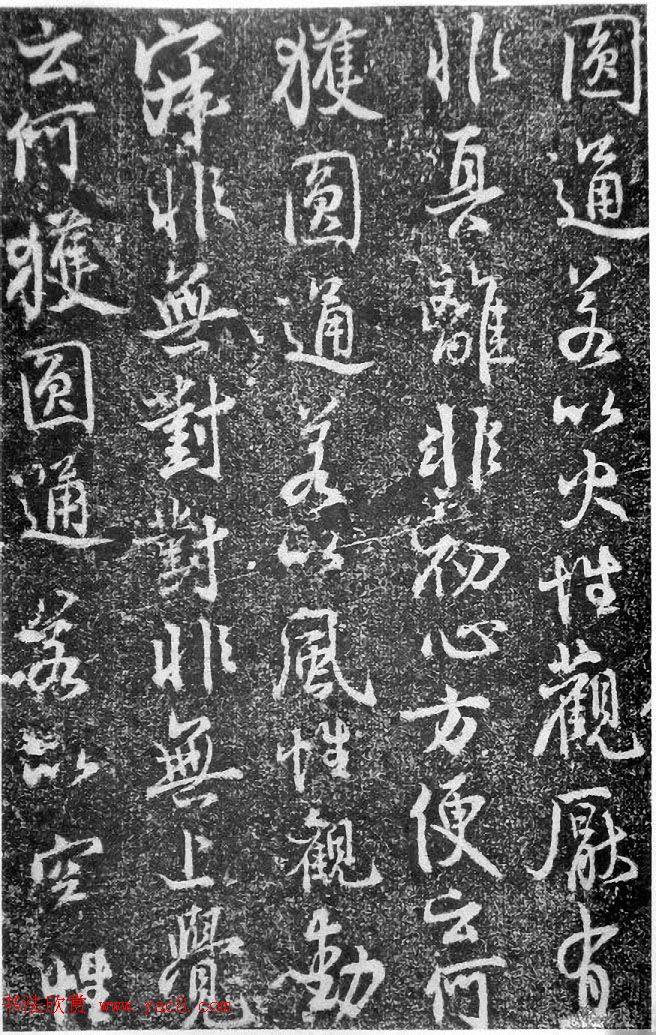 圓通若以火性觀厭有
非真離非初心方便云何
獲圓通若以風性觀動
寂非無對對非無上覺
云何獲圓通若以空性
书法欣赏 www.yac8.com